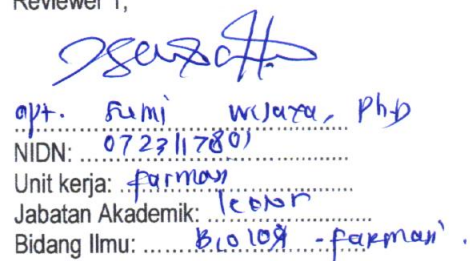 Reviewer 1,
apt. Sumi Wijaya, Ph.D
NIDN: 0723117801
Unit kerja: Farmasi
Jabatan Akademik: Lektor
Bidang Ilmu: Biologi - Farmasi.